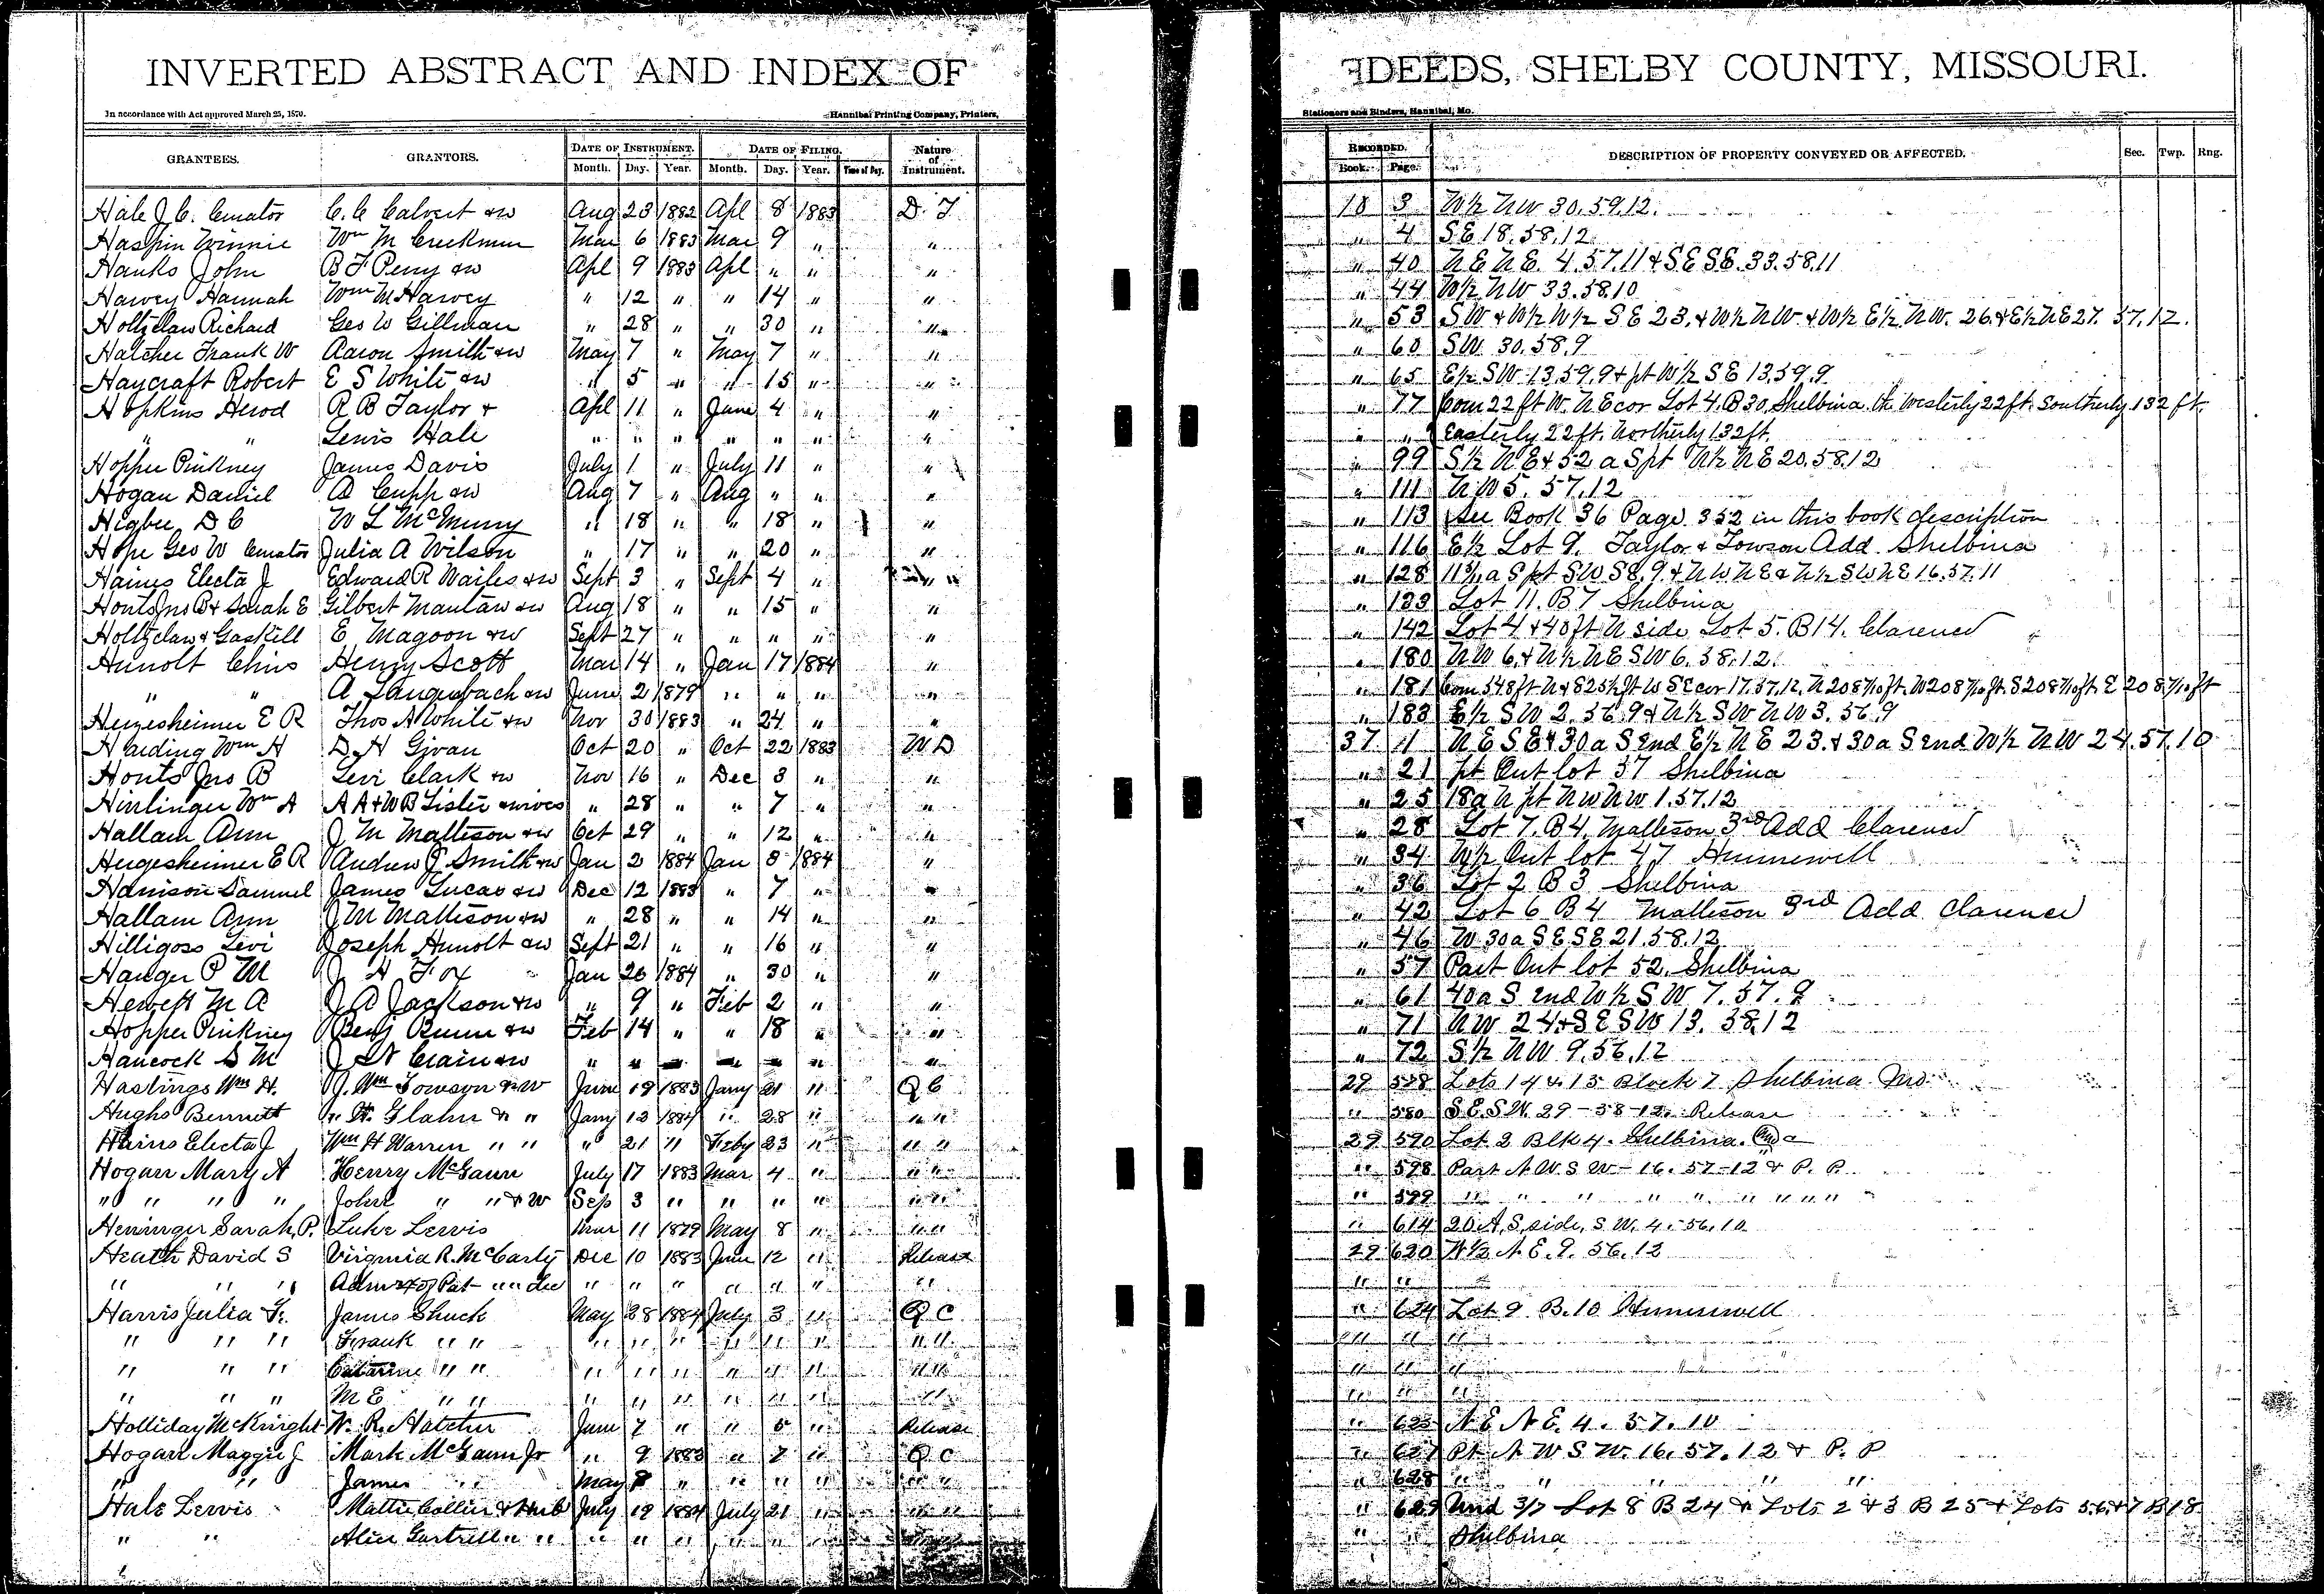 INVERTED ABSTRACT AND INDEX OF DEEDS, SHELBY COUNTY, MISSOURI.
In accordance with Act approved March 25, 1870. Hannibal Printing Company, Printers, Stationers and Binders, Hannibal, Mo.
GRANTEES. GRANTORS. DATE OF INSTRUMENT. DATE OF FILING. Nature of Instrument. RECORDED. DESCRIPTION OF PROPERTY CONVEYED OR AFFECTED. Sec. Twp. Rng.
Month. Day. Year. Month. Day. Year. Time of Day. Book. Page.
Hale J. C. Curator C. C Calvert &w Aug 23 1882 Apl 8 1883 D. T 18 3 W½ NW 30.59.12.
Haspin Winnie Wm M Creekmur Mar 6 1883 Mar 9 " " " 4 SE 18.58.12
Hanks John B F Perry &w Apl 9 1883 Apl " " " " 40 NE NE. 4.57.11 & SE SE. 33.58.11
Harvey Hannah Wm M Harvey " 12 " " 14 " " " 44 W½ NW 33.58.10
Holtzclaw Richard Geo W Gillman " 28 " " 30 " " " 53 SW & W½ W½ SE 23. & W½ NW. & W½ E½ NW. 26. & E½ NE 27. 57.12.
Hatcher Frank W Aaron Smith &w May 7 " May 7 " " " 60 SW 30.58.9
Haycraft Robert E S White &w " 5 " " 15 " " " 65 E½ SW 13.59.9 & pt W½ SE 13.59.9
Hopkins Herod R B Taylor & Apl 11 " June 4 " " " 77 Com 22 ft W. NE cor Lot 4. B 30. Shelbina. th Westerly 22 ft. Southerly 132 ft.
" " Lewis Hale " " " " " " " " " Easterly 22 ft. Northerly 132 ft.
Hopper Pinkney James Davis July 1 " July 11 " " " 99 S½ NE & 52 a S pt N½ NE 20.58.12
Hogan Daniel A Cupp &w Aug 7 " Aug " " " " 111 NW 5. 57.12
Higbee D C W L McMurry " 18 " " 18 " " " 113 See Book 36 Page 352 in this book description
Hope Geo W Curator Julia A Wilson " 17 " " 20 " " " 116 E½ Lot 9. Taylor & Towson Add. Shelbina
Haines Electa J Edward R Wailes &w Sept 3 " Sept 4 " " " 128 a S pt SW SE. 9. & NW NE & N½ SW NE 16.57.11
Honts Jno B & Sarah E Gilbert &w Aug 18 " " 15 " " " 133 Lot 11. B 7 Shelbina
Holtzclaw & Gaskill E Magoon &w Sept 27 " " " " " " 142 Lot 4 & 40 ft N side Lot 5. B 14. Clarence
Hunolt Chris Henry Scott Mar 14 " Jan 17 1884 " " 180 NW 6. & N½ NE SW 6. 58.12.
" " A Langenbach &w June 2 1879 " " " " " 181 Com 548 ft N & 825½ ft W SE cor 17.57.12. N 208 7/10 ft. W 208 7/10 ft. S 208 7/10 ft. E 208 7/10 ft
Hergesheimer E R Thos A White &w Nov 30 1883 " 24 " " " 183 E½ SW 2. 56.9 & N½ SW NW 3. 56.9
Harding Wm H D H Givan Oct 20 " Oct 22 1883 W D 37 11 NE SE & 30 a S end E½ NE 23. & 30 a S end W½ NW 24.57.10
Honts Jno B Levi Clark &w Nov 16 " Dec 3 " " " 21 pt Out lot 37 Shelbina
Hirrlinger Wm A A A & W B Lister & wives " 28 " " 7 " " " 25 18 a N pt NW NW 1.57.12
Hallam Ann J M Mattison &w Oct 29 " " 12 " " " 28 Lot 7. B 4. Mattison 3rd Add Clarence
Hergesheimer E R Andrew J Smith &w Jan 2 1884 Jan 8 1884 " " 34 W½ Out lot 47 Hunnewell
Harrison Samuel James Lucas &w Dec 12 1883 " 7 " " " 36 Lot 2 B 3 Shelbina
Hallam Ann J M Mattison &w " 28 " " 14 " " " 42 Lot 6 B 4 Mattison 3rd Add Clarence
Hilligoss Levi Joseph Hunolt &w Sept 21 " " 16 " " " 46 W 30 a SE SE 21.58.12
Hanger P M J H Fox Jan 26 1884 " 30 " " " 57 Part Out lot 52. Shelbina
Hewett M A J A Jackson &w " 9 " Feb 2 " " " 61 40 a S end W½ SW 7. 57.9
Hopper Pinkney Benj Bunn &w Feb 14 " " 18 " " " 71 NW 24 & SE SW 13. 58.12
Hancock S M Crain &w " " " " " " " " 72 S½ NW 9.56.12
Hastings Wm H. J. Wm Towson &w June 19 1883 Jany 21 " Q C 29 578 Lots 14 & 15 Block 7 Shelbina Mo.
Hughs Bennett " H. Glahn & " Jany 12 1884 " 28 " " " " 580 S.E. S.W. 29-58-12. Release
Hains Electa J Wm H Warren " " " 21 " Feby 23 " " " 29 590 Lot 2 Blk 4. Shelbina.
Hogan Mary A Henry McGann July 17 1883 Mar 4 " " " " 598 Part N.W. S W - 16. 57-12 & P. P.
" " " " John " " & W Sep 3 " " " " " " " 599 " " " " " " " " "
Heninger Sarah P. Luke Lewis Mar 11 1879 May 8 " " " " 614 20 A, S, side, S W, 4.-56.10
Heath David S Virginia R. McCarty Dec 10 1883 June 12 " Release 29 620 W½ N E. 9. 56.12
" " " Admx of Pat " " dec " " " " " " " " " " "
Harris Julia F. James Shuck May 28 1884 July 3 " Q C " 624 Lot 9 B. 10 Hunnewell
" " " Frank " " " " " " " " " " " " "
" " " Catarine " " " " " " " " " " " " "
" " " M E " " " " " " " " " " " " "
Holliday McKnight W. R. Hatcher June 7 " " 5 " Release " 625 N E N E. 4. 57. 10
Hogan Maggie J Mark McGann Jr " 9 1883 " 7 " Q C " 627 Pt N W S W. 16. 57. 12 & P. P
" " James " " May 8 " " " " " " " 628 " " " " "
Hale Lewis Mattie Collier & Hub July 19 1884 July 21 " " " " 629 Und 3/7 Lot 8 B 24 & Lots 2 & 3 B 25 & Lots 5.6. & 7 B 18
" " Alice Gartrell " " " " " " " " " " Shelbina